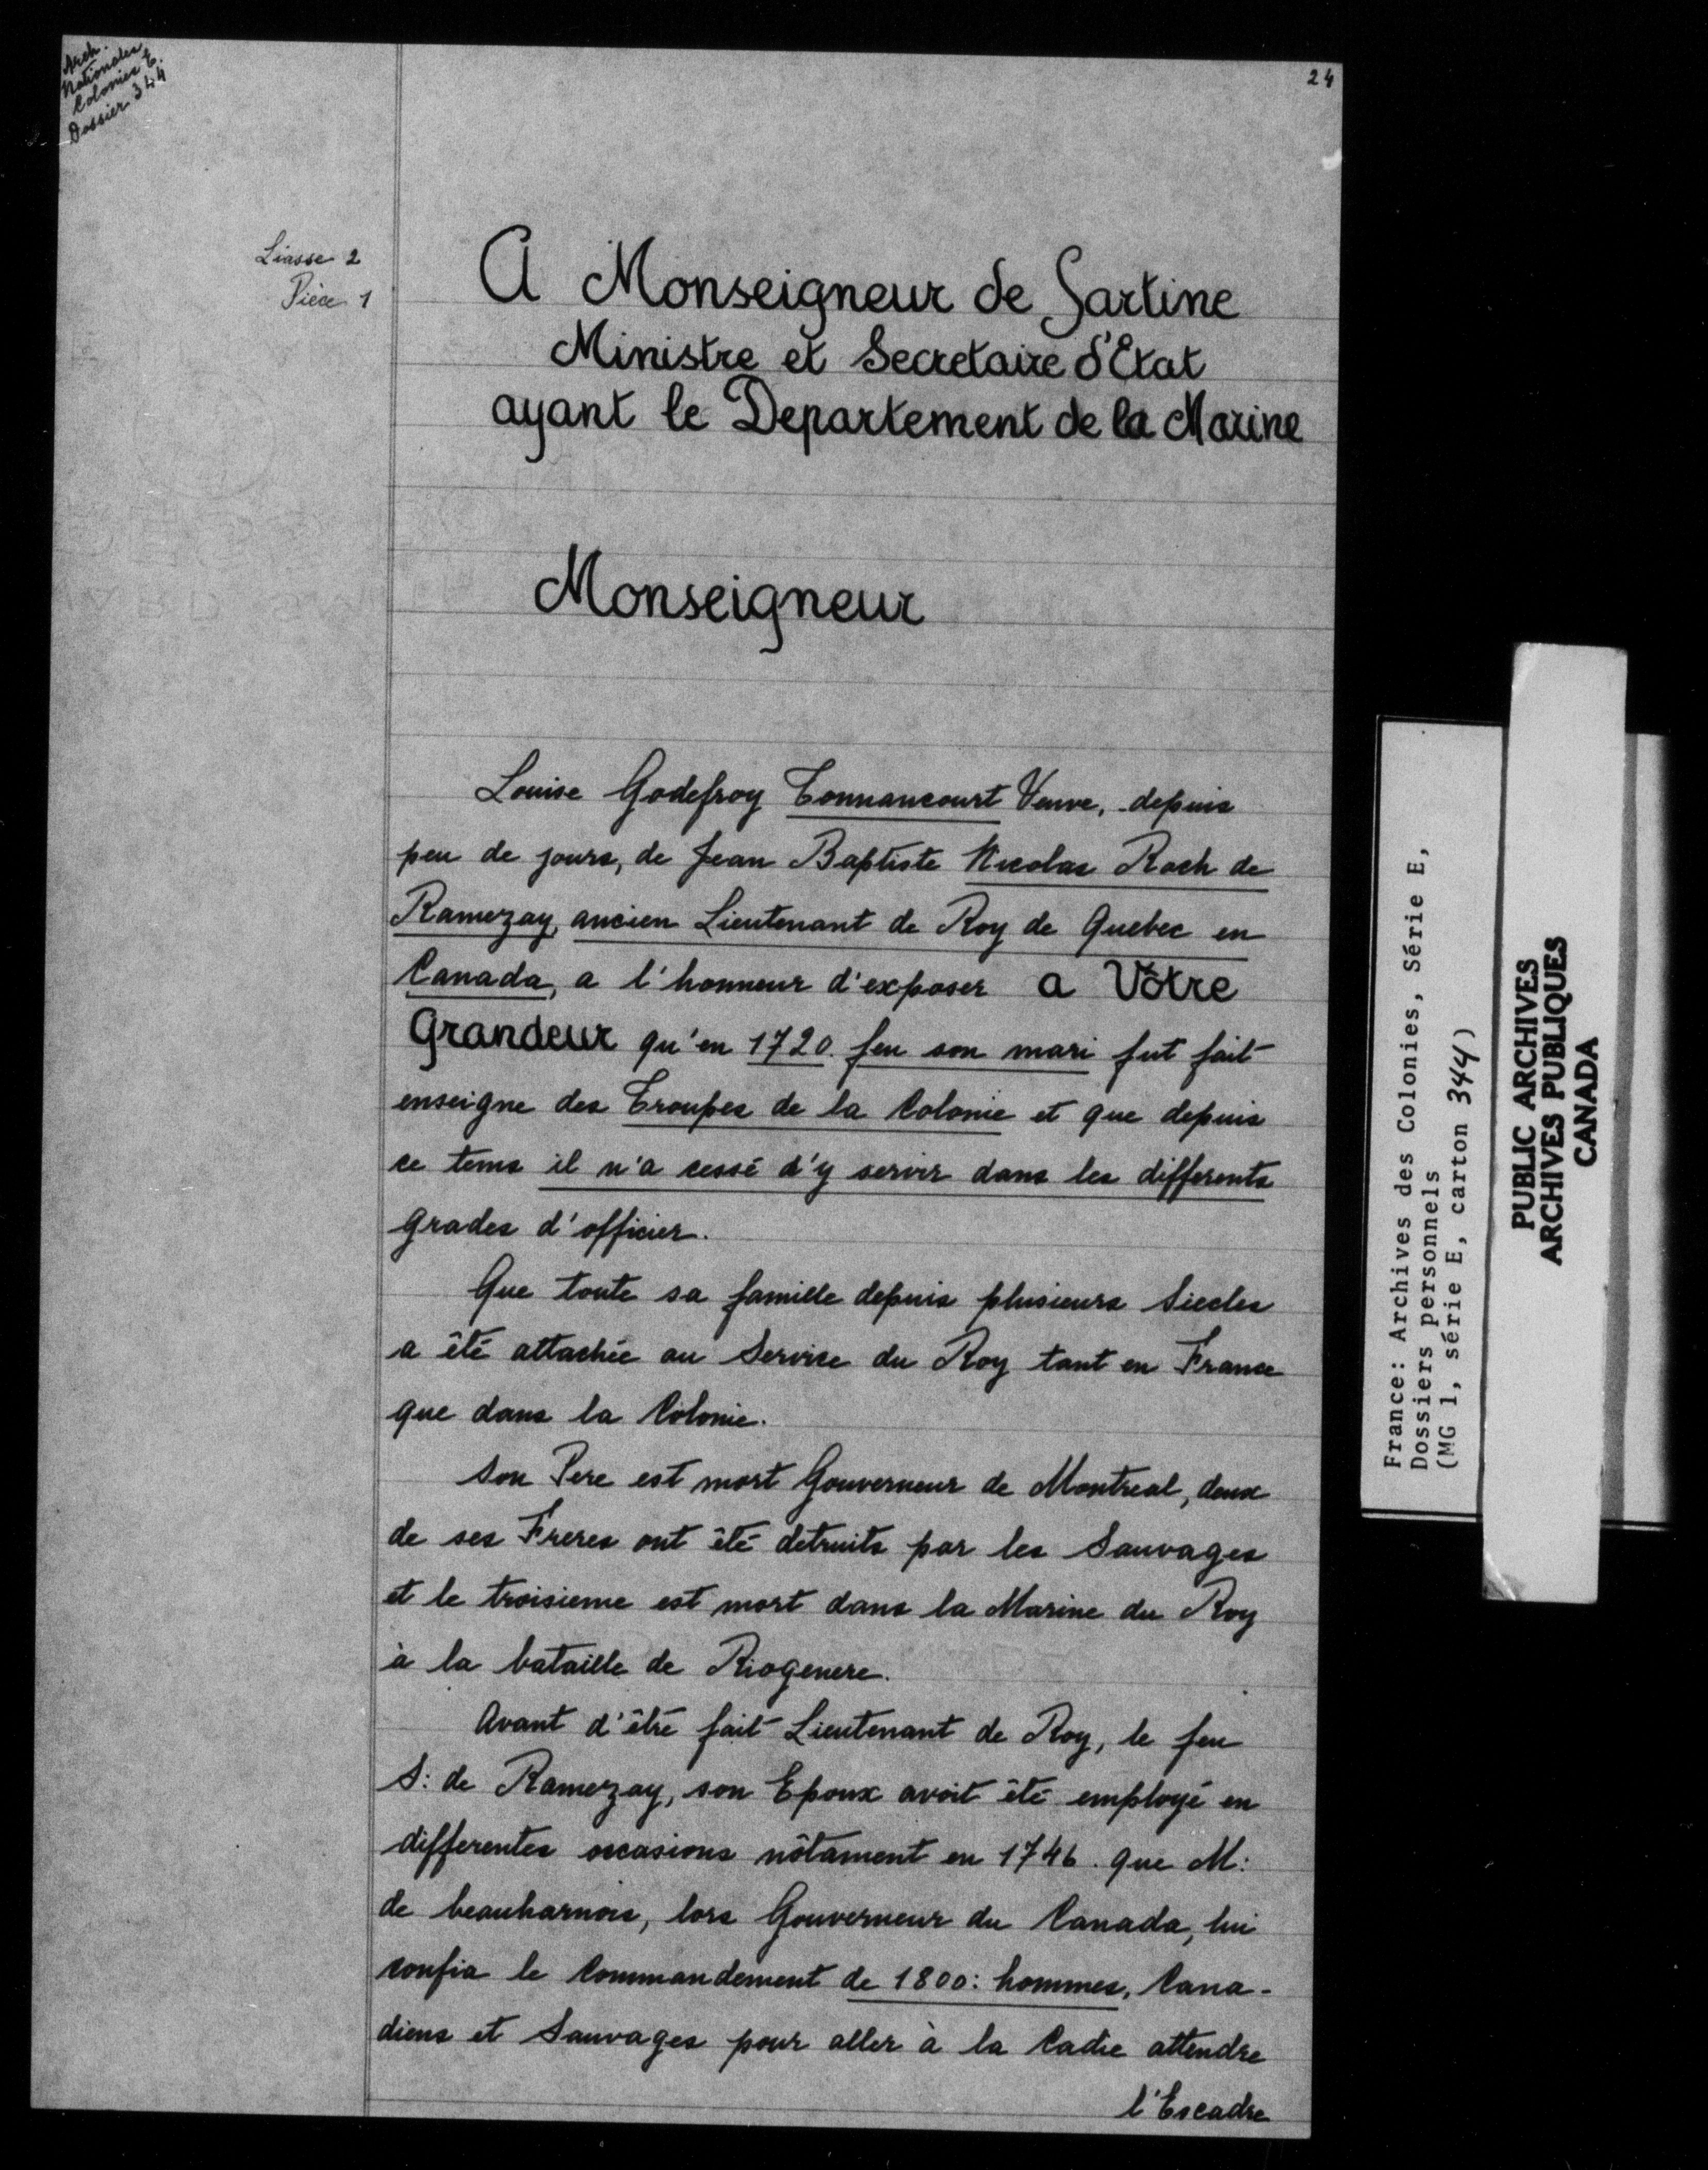 Arch.
Nationales
Colonies E.
Dossier 344
24
Liasse 2
Pièce 1
A Monseigneur de Sartine
Ministre et Secretaire d'Etat
ayant le Departement de la Marine
Monseigneur
Louise Godefroy Tonnancourt Veuve, depuis
peu de jours, de Jean Baptiste Nicolas Roch de
Ramezay, ancien Lieutenant de Roy de Quebec en
Canada, a l'honneur d'exposer a Vôtre
Grandeur qu'en 1720. feu son mari fut fait
enseigne des Troupes de la Colonie et que depuis
ce tems il n'a cessé d'y servir dans les differents
grades d'officier.
Que toute sa famille depuis plusieurs Siecles
a êté attachée au Service du Roy tant en France
que dans la Colonie.
Son Pere est mort Gouverneur de Montreal, deux
de ses Freres ont êté detruits par les Sauvages
et le troisieme est mort dans la Marine du Roy
à la bataille de Riogenere.
Avant d'être fait Lieutenant de Roy, le feu
S: de Ramezay, son Epoux avoit êté employé en
differentes occasions nôtament en 1746. que M:
de beauharnois, lors Gouverneur du Canada, lui
confia le Commandement de 1800: hommes, Cana-
diens et Sauvages pour aller à la Cadie attendre
l'Escadre
France: Archives des Colonies, Série E,
Dossiers personnels
(MG 1, série E, carton 344)
PUBLIC ARCHIVES
ARCHIVES PUBLIQUES
CANADA